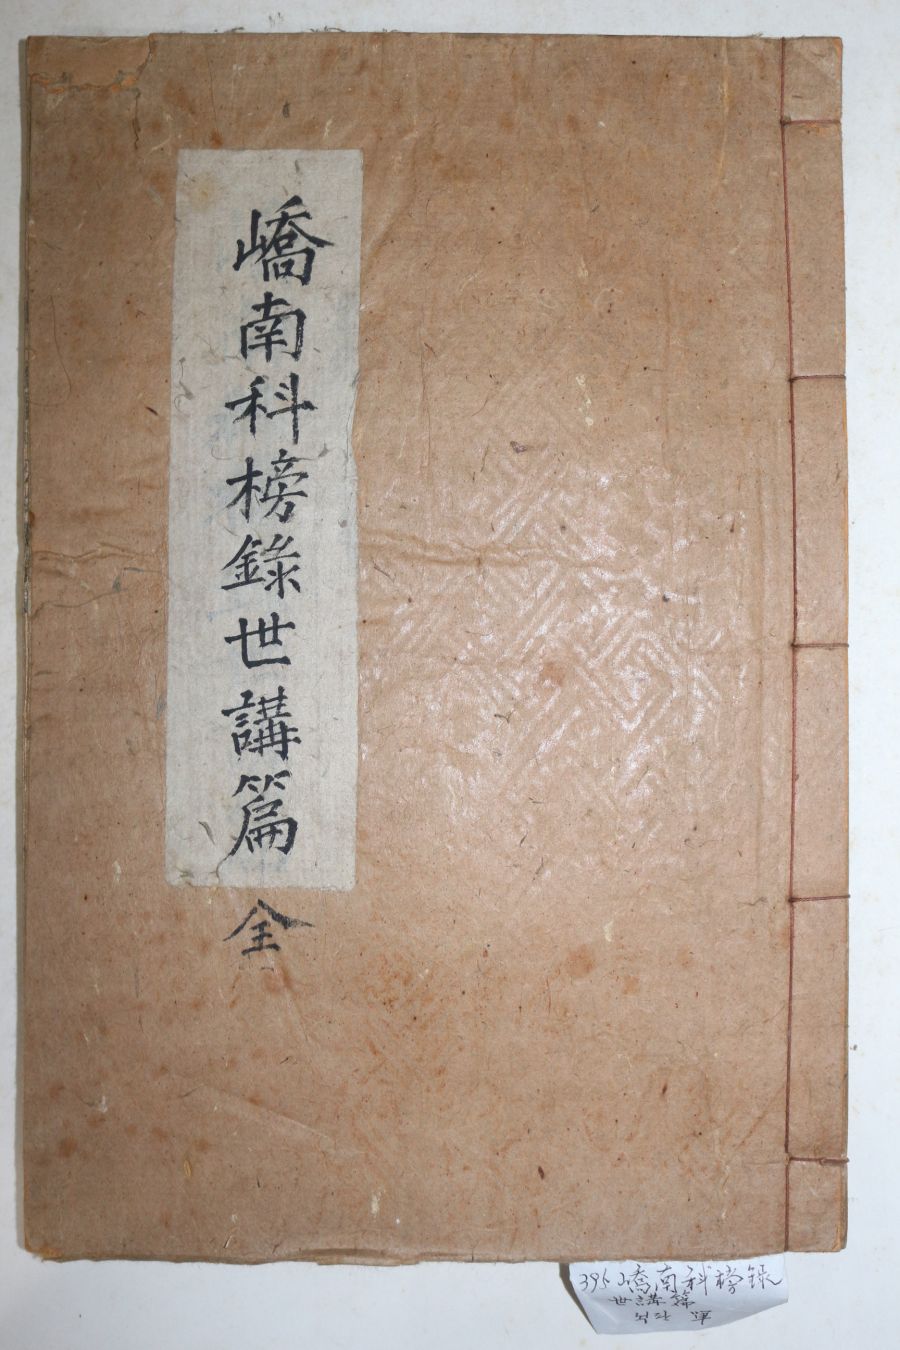 嶠南科榜錄世講篇
全
395 嶠南科榜録
世講篇